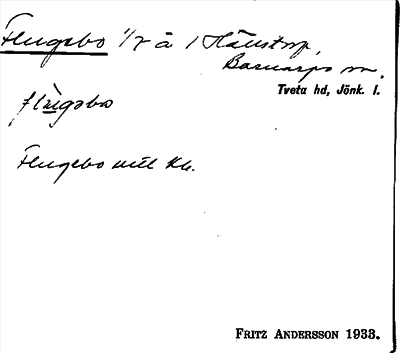 Flugebo 1/7 å 1 Hånstorp,
Barnarps sn.
Tveta hd, Jönk. l.
flùgəbo
Flugebo mtl Kb.
FRITZ ANDERSSON 1933.